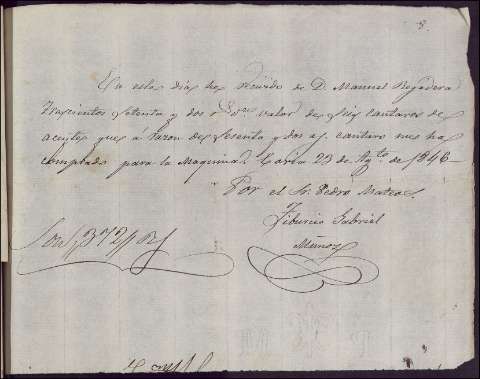 8.
En este dia he recivido de D. Manuel Regadera
Trescientos setenta y dos r.s v.n valor de seis cantaros de
aceyte que á razon de sesenta y dos r.s cantaro me ha
comprado para la Maquina. Coria 23 de Ag.to de 1846
Por el Sr. Pedro Mateos.
Tiburcio Gabriel
Munoz
Son 372 Rs